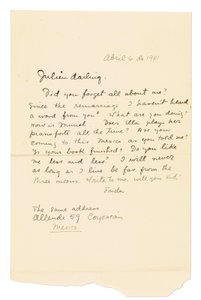 Abril 6 de 1941
Julien darling.
Did you forget all about me?
Since the remarriage I haven't heard
a word from you? What are you doing?
How is Muriel? Does Ulla plays her
pianoforte all the time? Are you
coming to this Mexico as you told me?
Is your book finished? Do you like
me less and less? I will never
as long as I live, be far from the
three moons. Write to me, will you kid
Frida
The same address
Allende 59 Coyoacan
Mexico